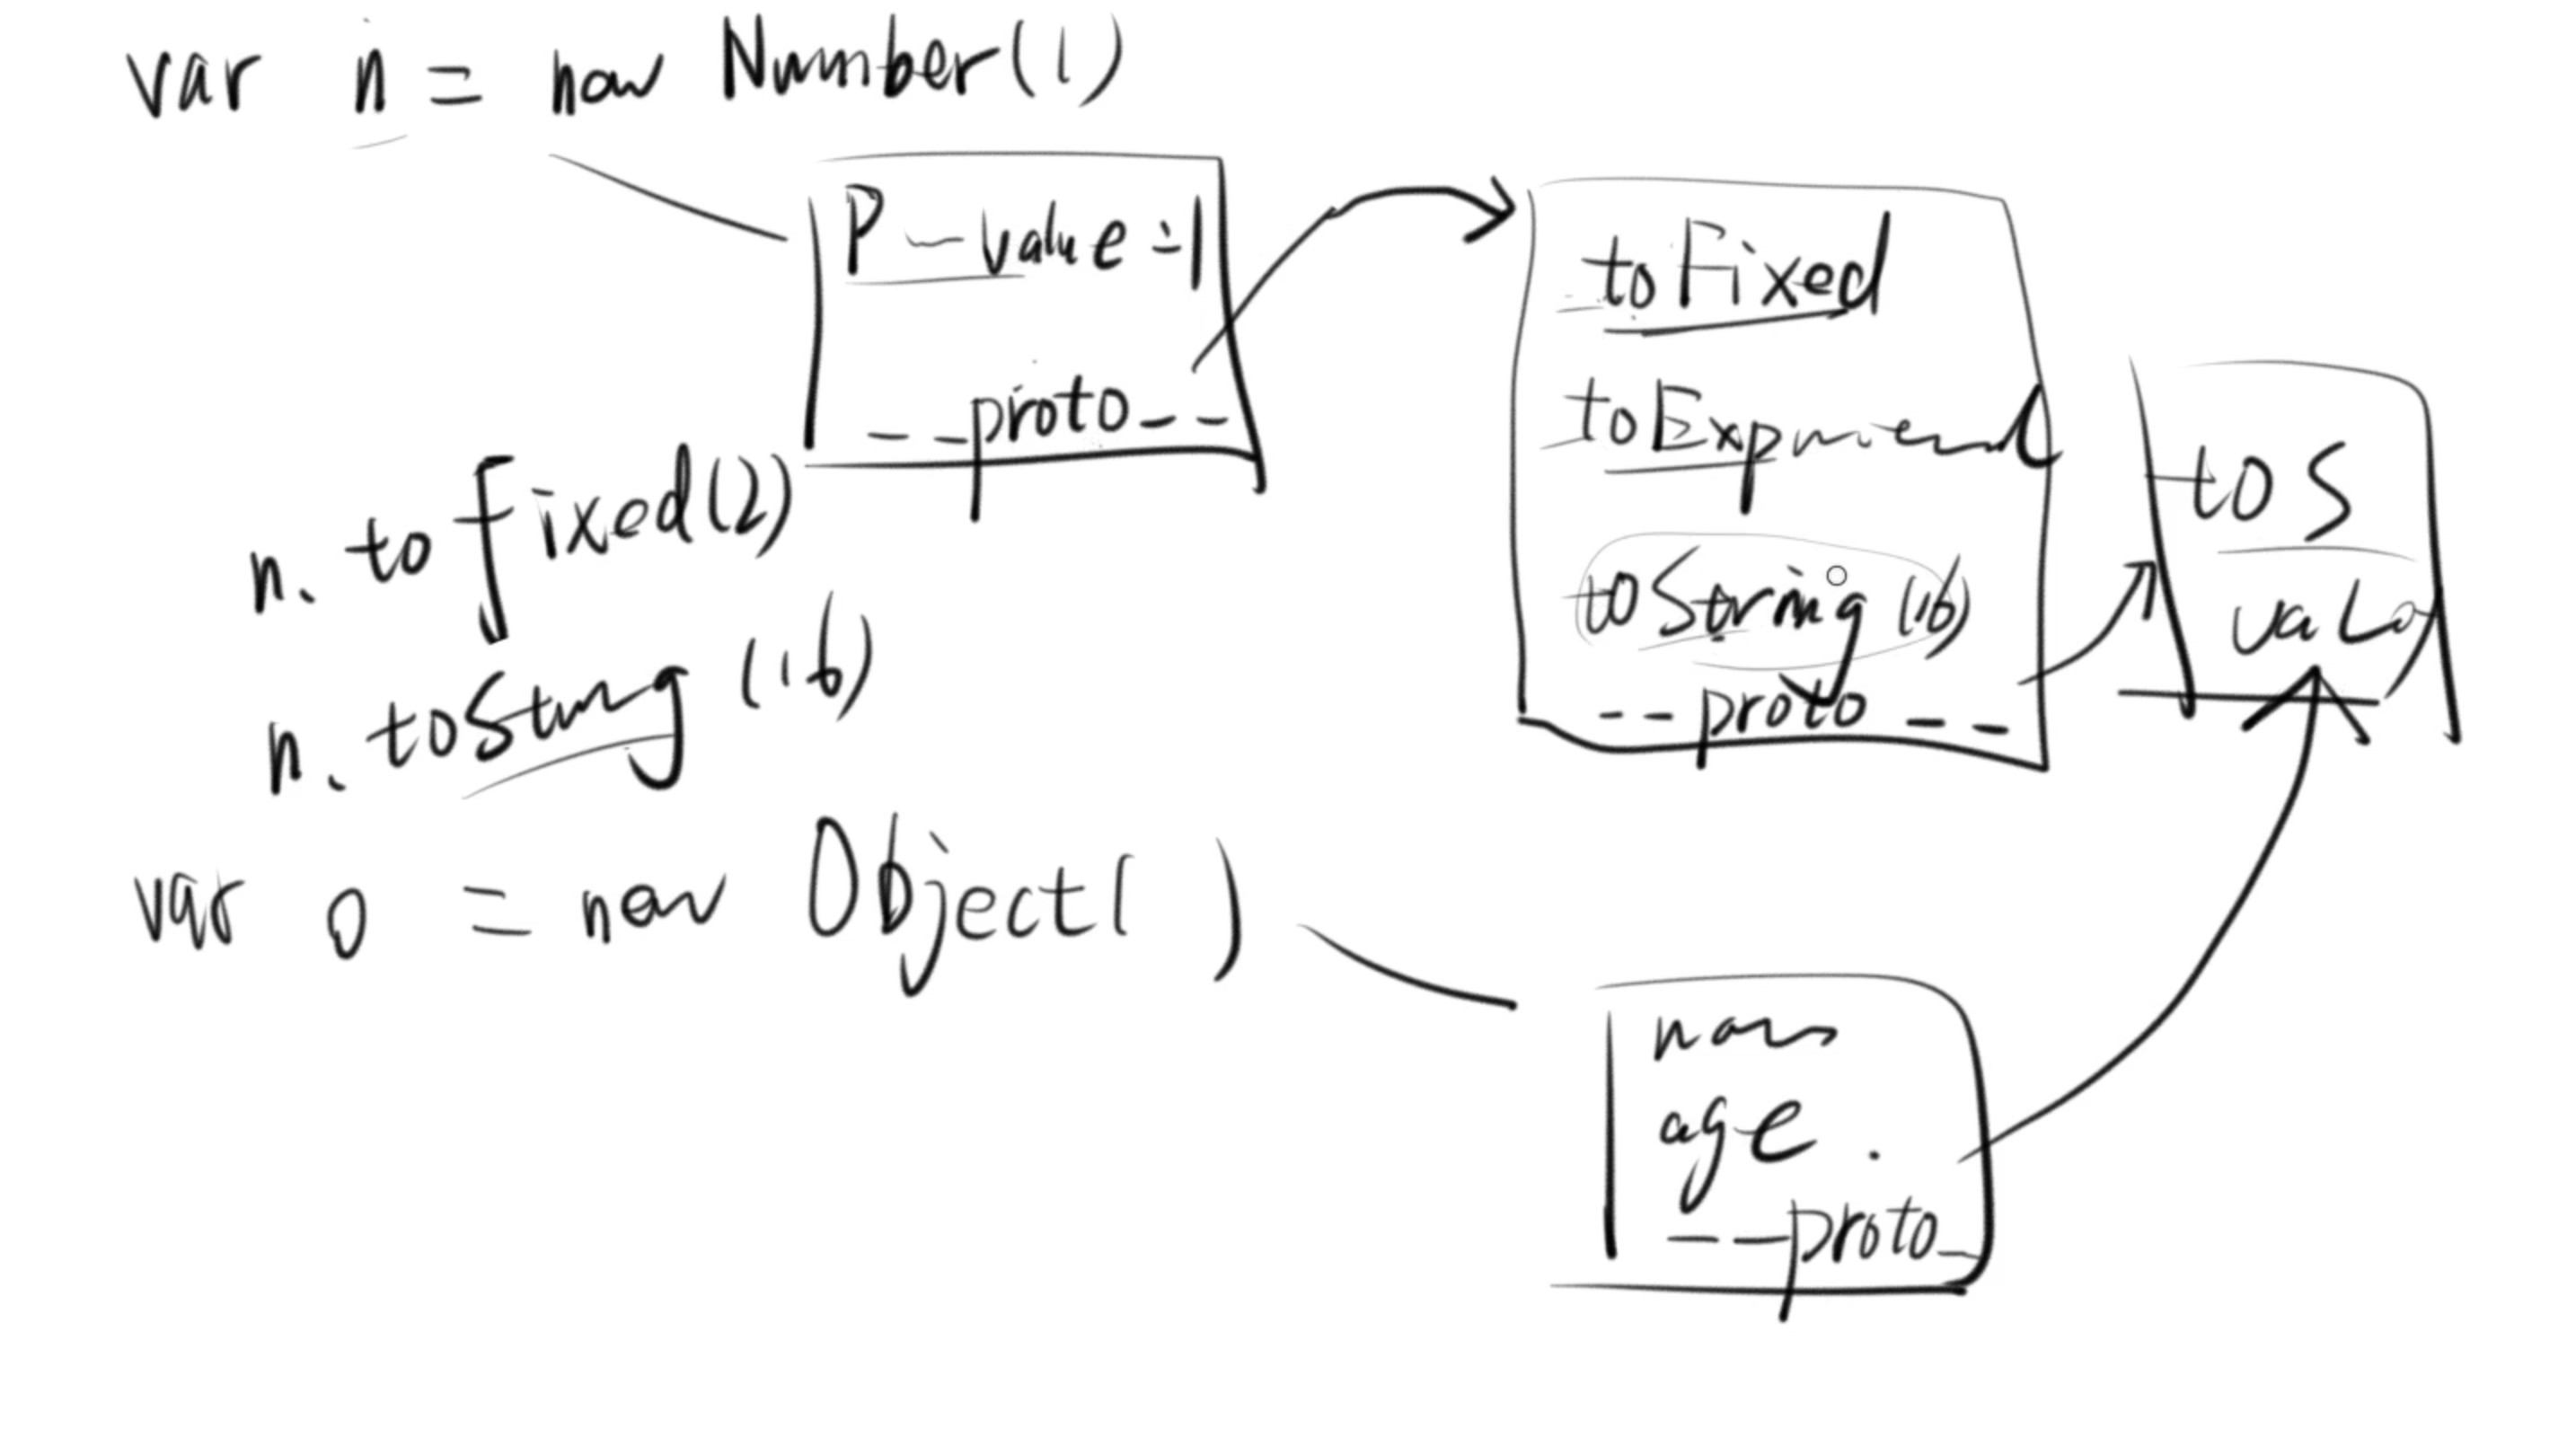 var n = new Number(1)
P-value=1
__proto__
toFixed
toString(16)
__proto__
toS
val
n.toFixed(2)
n.toString(16)
var o = new Object( )
age.
__proto_